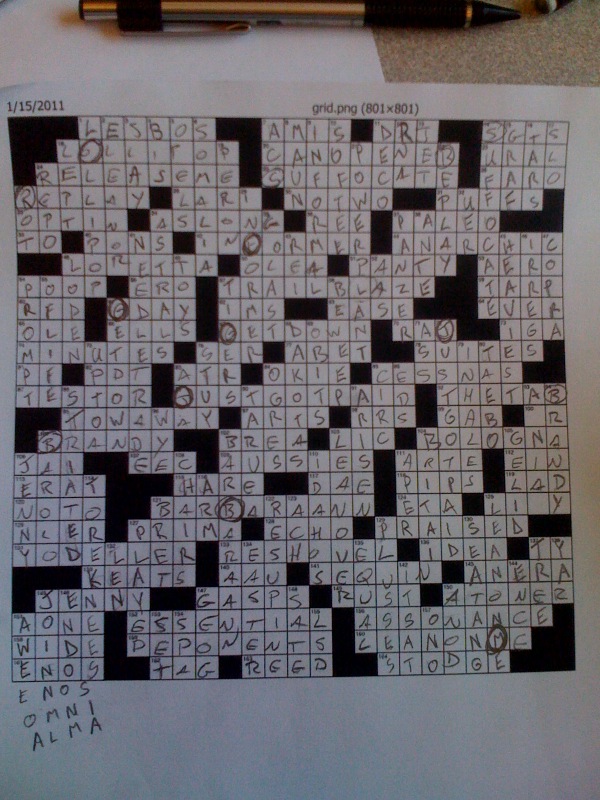 1/15/2011 grid.png (801×801)
LESBOS AMIS DRT SGTS
LOLLIPOP CANOPENER URAL
RELEASEME SUFFOCATE FARO
REPLAY LART NOTWO PUFFS
OPTIN ASLON REE PALEO
TO PONS IN DORMER ANARCHIC
LORETTA OLEA PANTY AERO
POOP ERO TRAILBLAZE TARP
RED GDAY IMS EASE EVER
OLE ELLS GETDOWN RAJ IGA
MINUTES SER ABET SUITES
PDT ATR OKIE CESSNAS
TESTOR JUSTGOTPAID THETAB
TOWAWAY ARTS RRS GAB
BRANDY BREA LIC BOLOGNA
JAI EEC AUSSIES ARTE EIN
ERAT HARE DAE PIPS LAD
NOTO BARBARAANN ETA
NLER PRIMA ECHO PRAISED
YODELLER RESHOVEL IDEA TY
KEATS AAU SEQUIN ANERA
JENNY GASPS RUST ATONER
AONE ESSENTIAL ASSONANCE
WIDE DEPONENTS LEANONME
ENOS TAG REED STODGE
ENOS
OMNI
ALMA